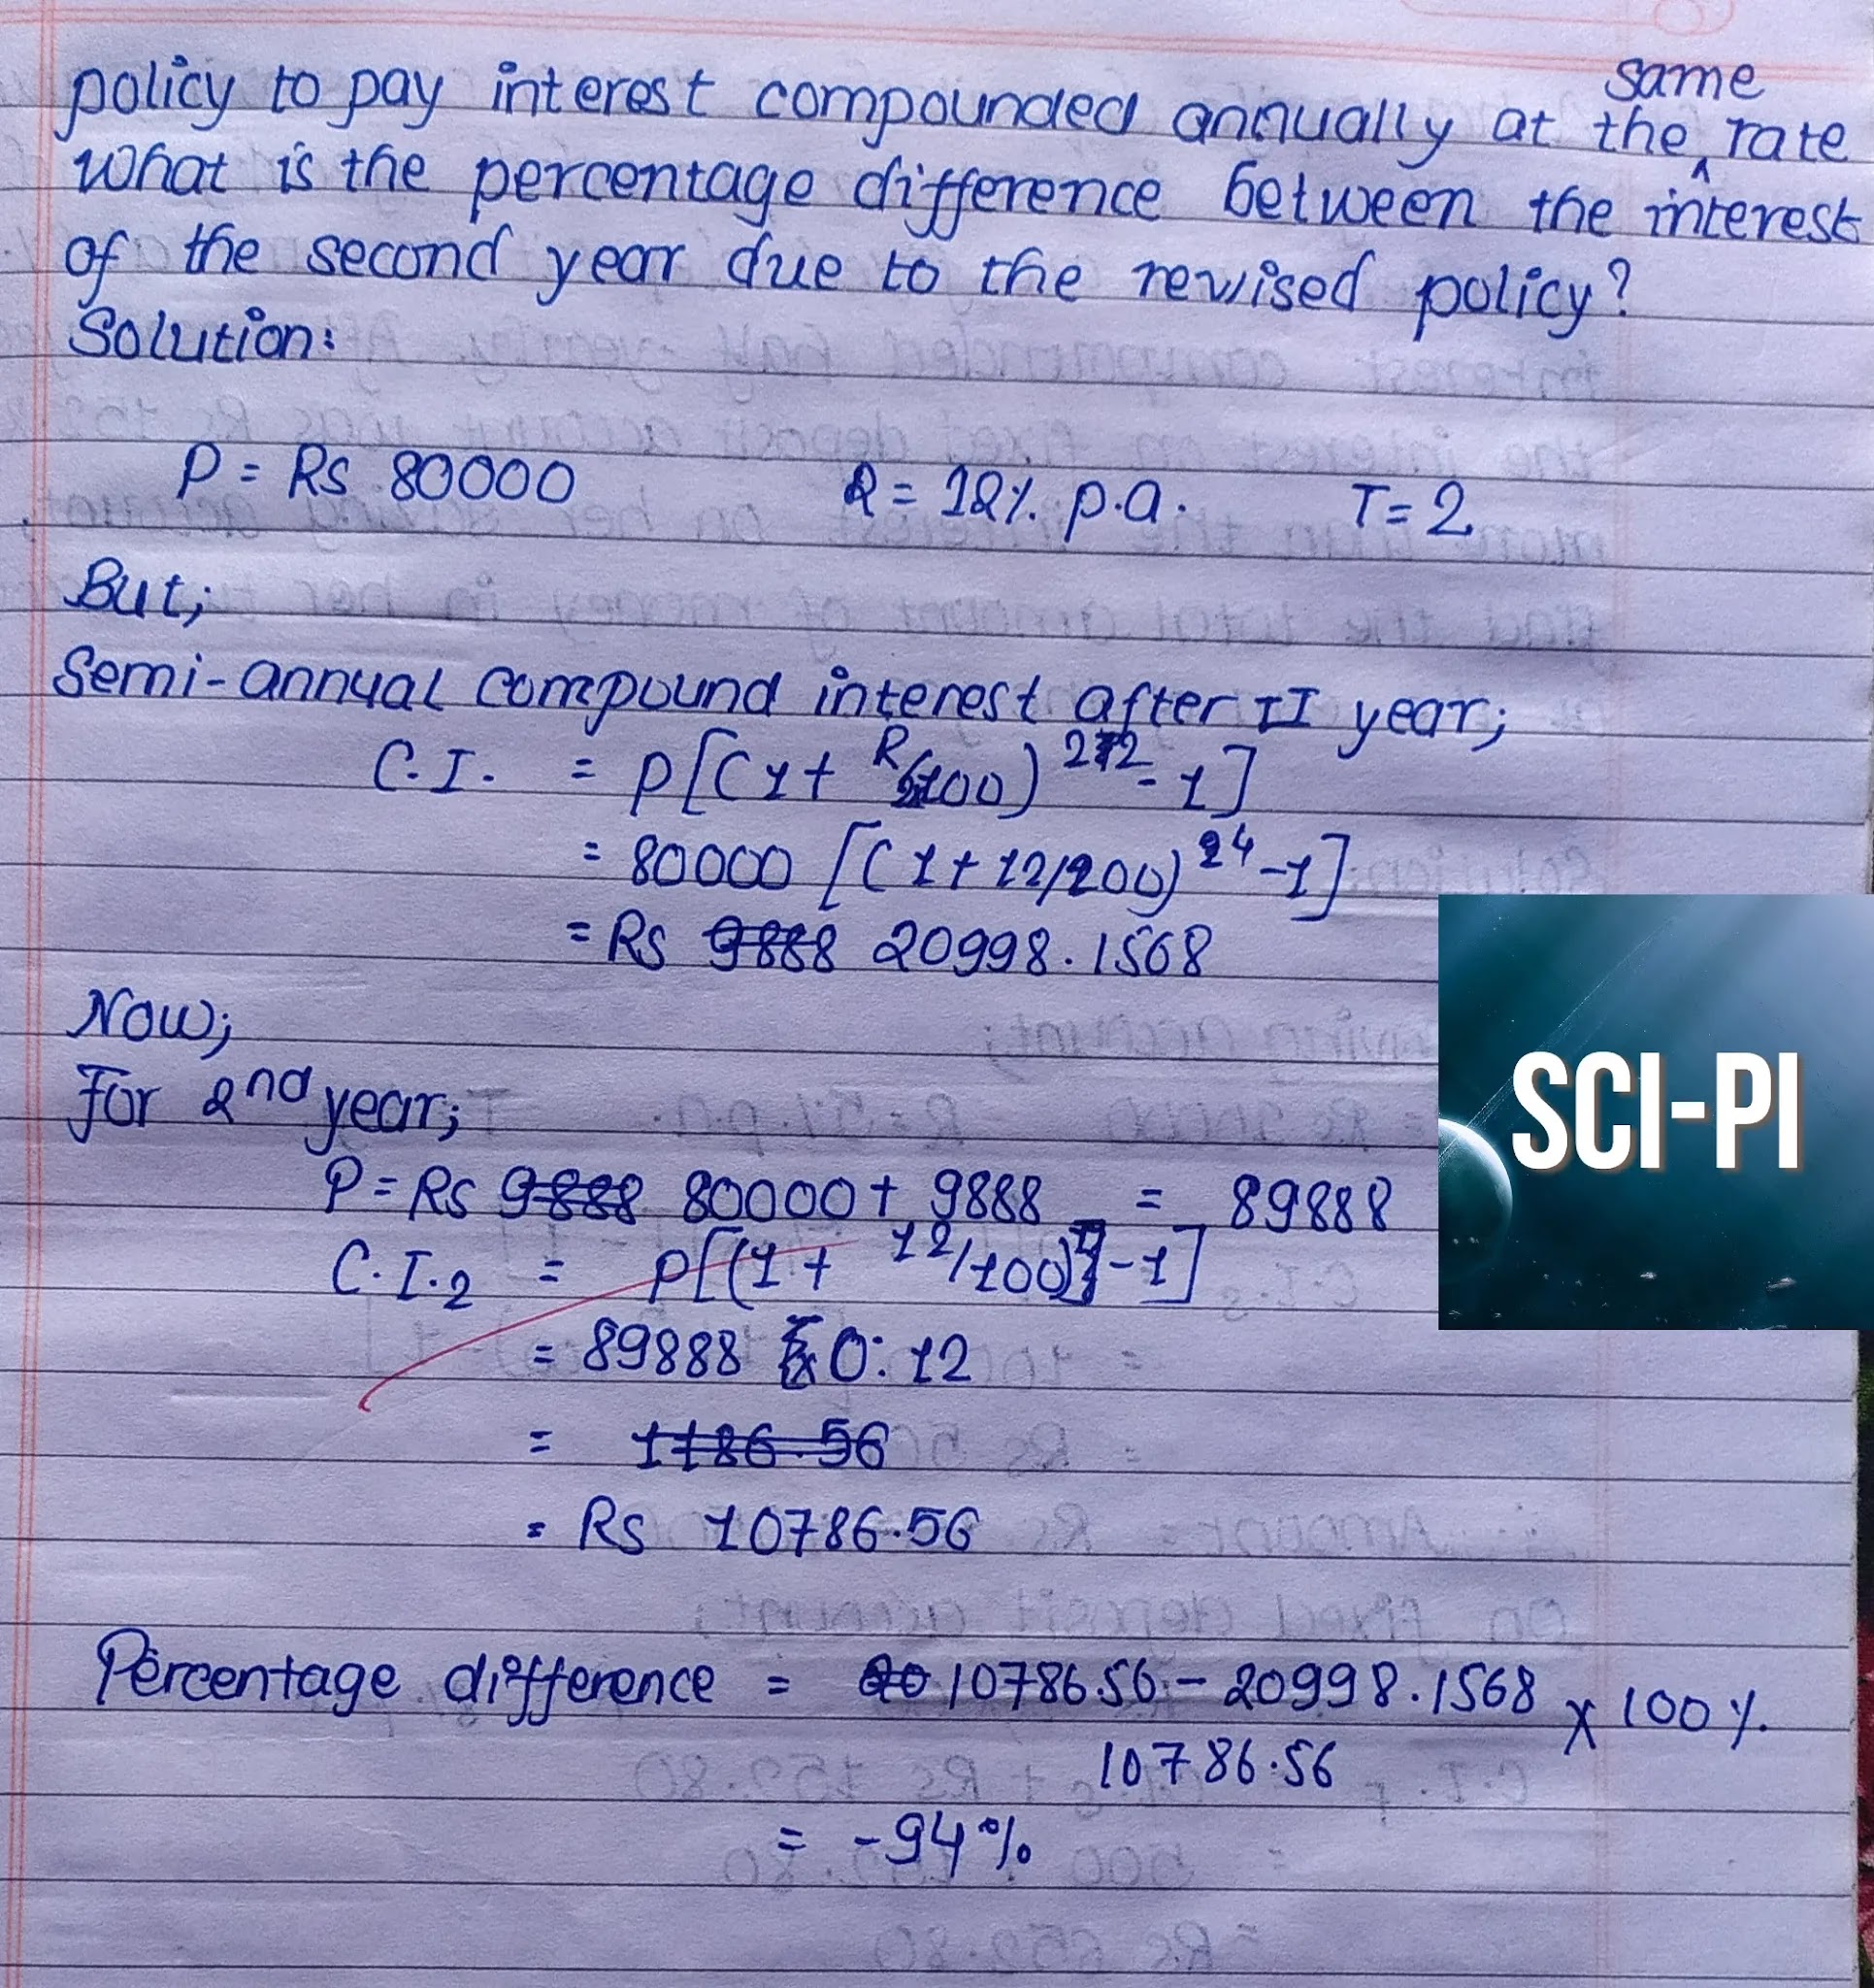 same
policy to pay interest compounded annually at the ^ rate
What is the percentage difference between the interest
of the second year due to the revised policy?
Solution:
P = Rs 80000 R = 12% p.a. T = 2
But;
Semi-annual compound interest after II year;
C.I. = P[(1 + R/200)^2*2 - 1]
= 80000 [(1 + 12/200)^24 - 1]
= Rs 9888 20998.1568
Now;
For 2nd year;
P = Rs 9888 80000 + 9888 = 89888
C.I.2 = P[(1 + 12/100) - 1]
= 89888 x 0.12
= 1186.56
= Rs 10786.56
Percentage difference = 20 10786.56 - 20998.1568 x 100 %
10786.56
= -94%
SCI-PI